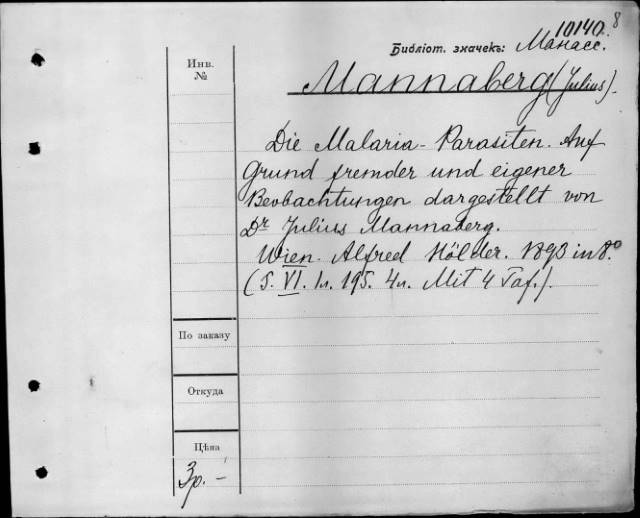 10140. 8
Библіот. значекъ: Манасс.
Инв.
№
Mannaberg (Julius).
Die Malaria-Parasiten. Auf
Grund fremder und eigener
Beobachtungen dargestellt von
Dr Julius Mannaberg.
Wien. Alfred Hölder. 1893 in 8.º
(S. VI. 1л. 195. 4л. Mit 4 Taf.).
По заказу
Откуда
Цѣна
3р. –